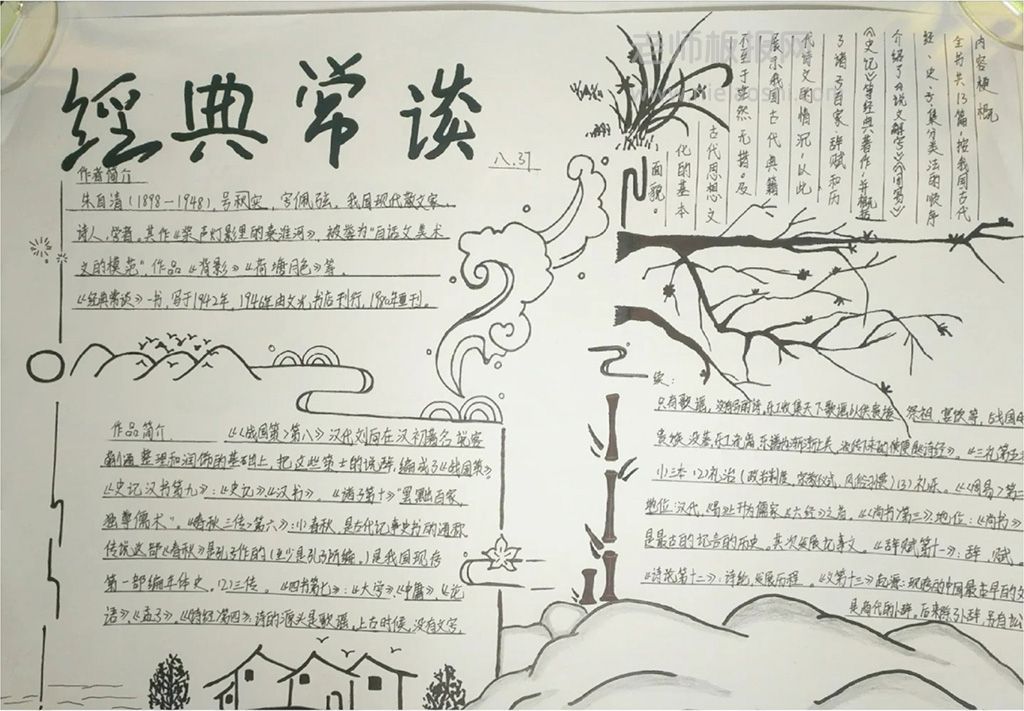 經典常谈
八.37
作者简介
朱自清(1898—1948),号秋实,字佩弦。我国现代散文家、
诗人,学者。其作《桨声灯影里的秦淮河》,被誉为“白话文美术
文的模范”作品《背影》《荷塘月色》等。
《经典常谈》一书,写于1942年,1946年由文光书店刊行,1980年重刊。
内容梗概
全书共13篇,按我国古代
经、史、子、集分类法的顺序
介绍了《说文解字》《周易》
《史记》等经典著作,并概括
了诸子百家、辞赋和历
代诗文的情况,以此
展示我国古代典籍
不至于茫然无措。及
古代思想文
化的基本
面貌。
作品简介 《《战国策》第八》汉代刘向在汉初著名说客
蒯通整理和润饰的基础上,把这些策士的说辞,编成了《战国策》
《史记汉书第九》:《史记》《汉书》。《诸子第十》“罢黜百家,
独尊儒术”。《春秋三传》第六》:小春秋,是古代记事史书的通称
传说这部《春秋》是孔子作的(至少是孔子所编。)是我国现存
第一部编年体史。(2)三传。《四书第七》:《大学》《中庸》,《论
语》《孟子》。《诗经第四》,诗的源头是歌谣。上古时候,没有文字,
续:
只有歌谣,
贵族
小三本 (2)礼治(政治制度,宗教仪式,风俗习惯)(3)礼乐。《《周易》第二
地位:汉代,《易》上升为儒家《六经》之首。《尚书》第三》地位:《尚书》
是最古的记言的历史。其次发展记事文。《辞赋第十一》:辞、赋。
《诗第十二》:诗 发展历程。《文第十三》起源:现存的中国最早的文
是商代的卜辞。后来除了卜辞,